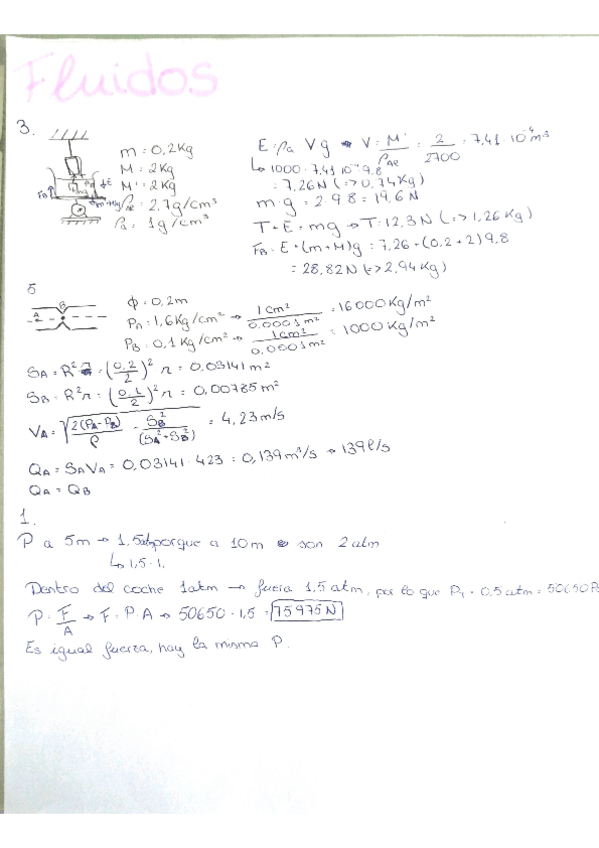 Fluidos
3.
m = 0,2Kg
M = 2Kg
M' = 2Kg
ρAe = 2,7g/cm³
ρa = 1g/cm³
E = ρa V g → V = M'/ρAe = 2/2700 = 7,41·10⁻⁴m³
↳ 1000·7,41·10⁻⁴·9,8
= 7,26N (=> 0,74Kg)
m·g = 2·9,8 = 19,6N
T + E = mg → T = 12,3N (=> 1,26Kg)
FB = E + (m+M)g = 7,26 + (0,2+2)9,8
= 28,82N (=> 2,94Kg)
5
A B
ϕ = 0,2m
PA = 1,6Kg/cm² → 1cm²/0,0001m² = 16000Kg/m²
PB = 0,1Kg/cm² → 1cm²/0,0001m² = 1000Kg/m²
SA = R²π = (0,2/2)² π = 0,03141m²
SB = R²π = (0,1/2)² π = 0,00785m²
VA = √ 2(PA-PB)/ρ · SB²/(SA²+SB²) = 4,23m/s
QA = SAVA = 0,03141·423 = 0,139m³/s → 139l/s
QA = QB
1.
P a 5m → 1,5atm porque a 10m son 2atm
↳ 1,5·1.
Dentro del coche 1atm → fuera 1,5atm, por lo que P1 = 0,5atm = 50650P
P = F/A → F = P·A → 50650·1,5 = 75975N
Es igual fuerza, hay la misma P.